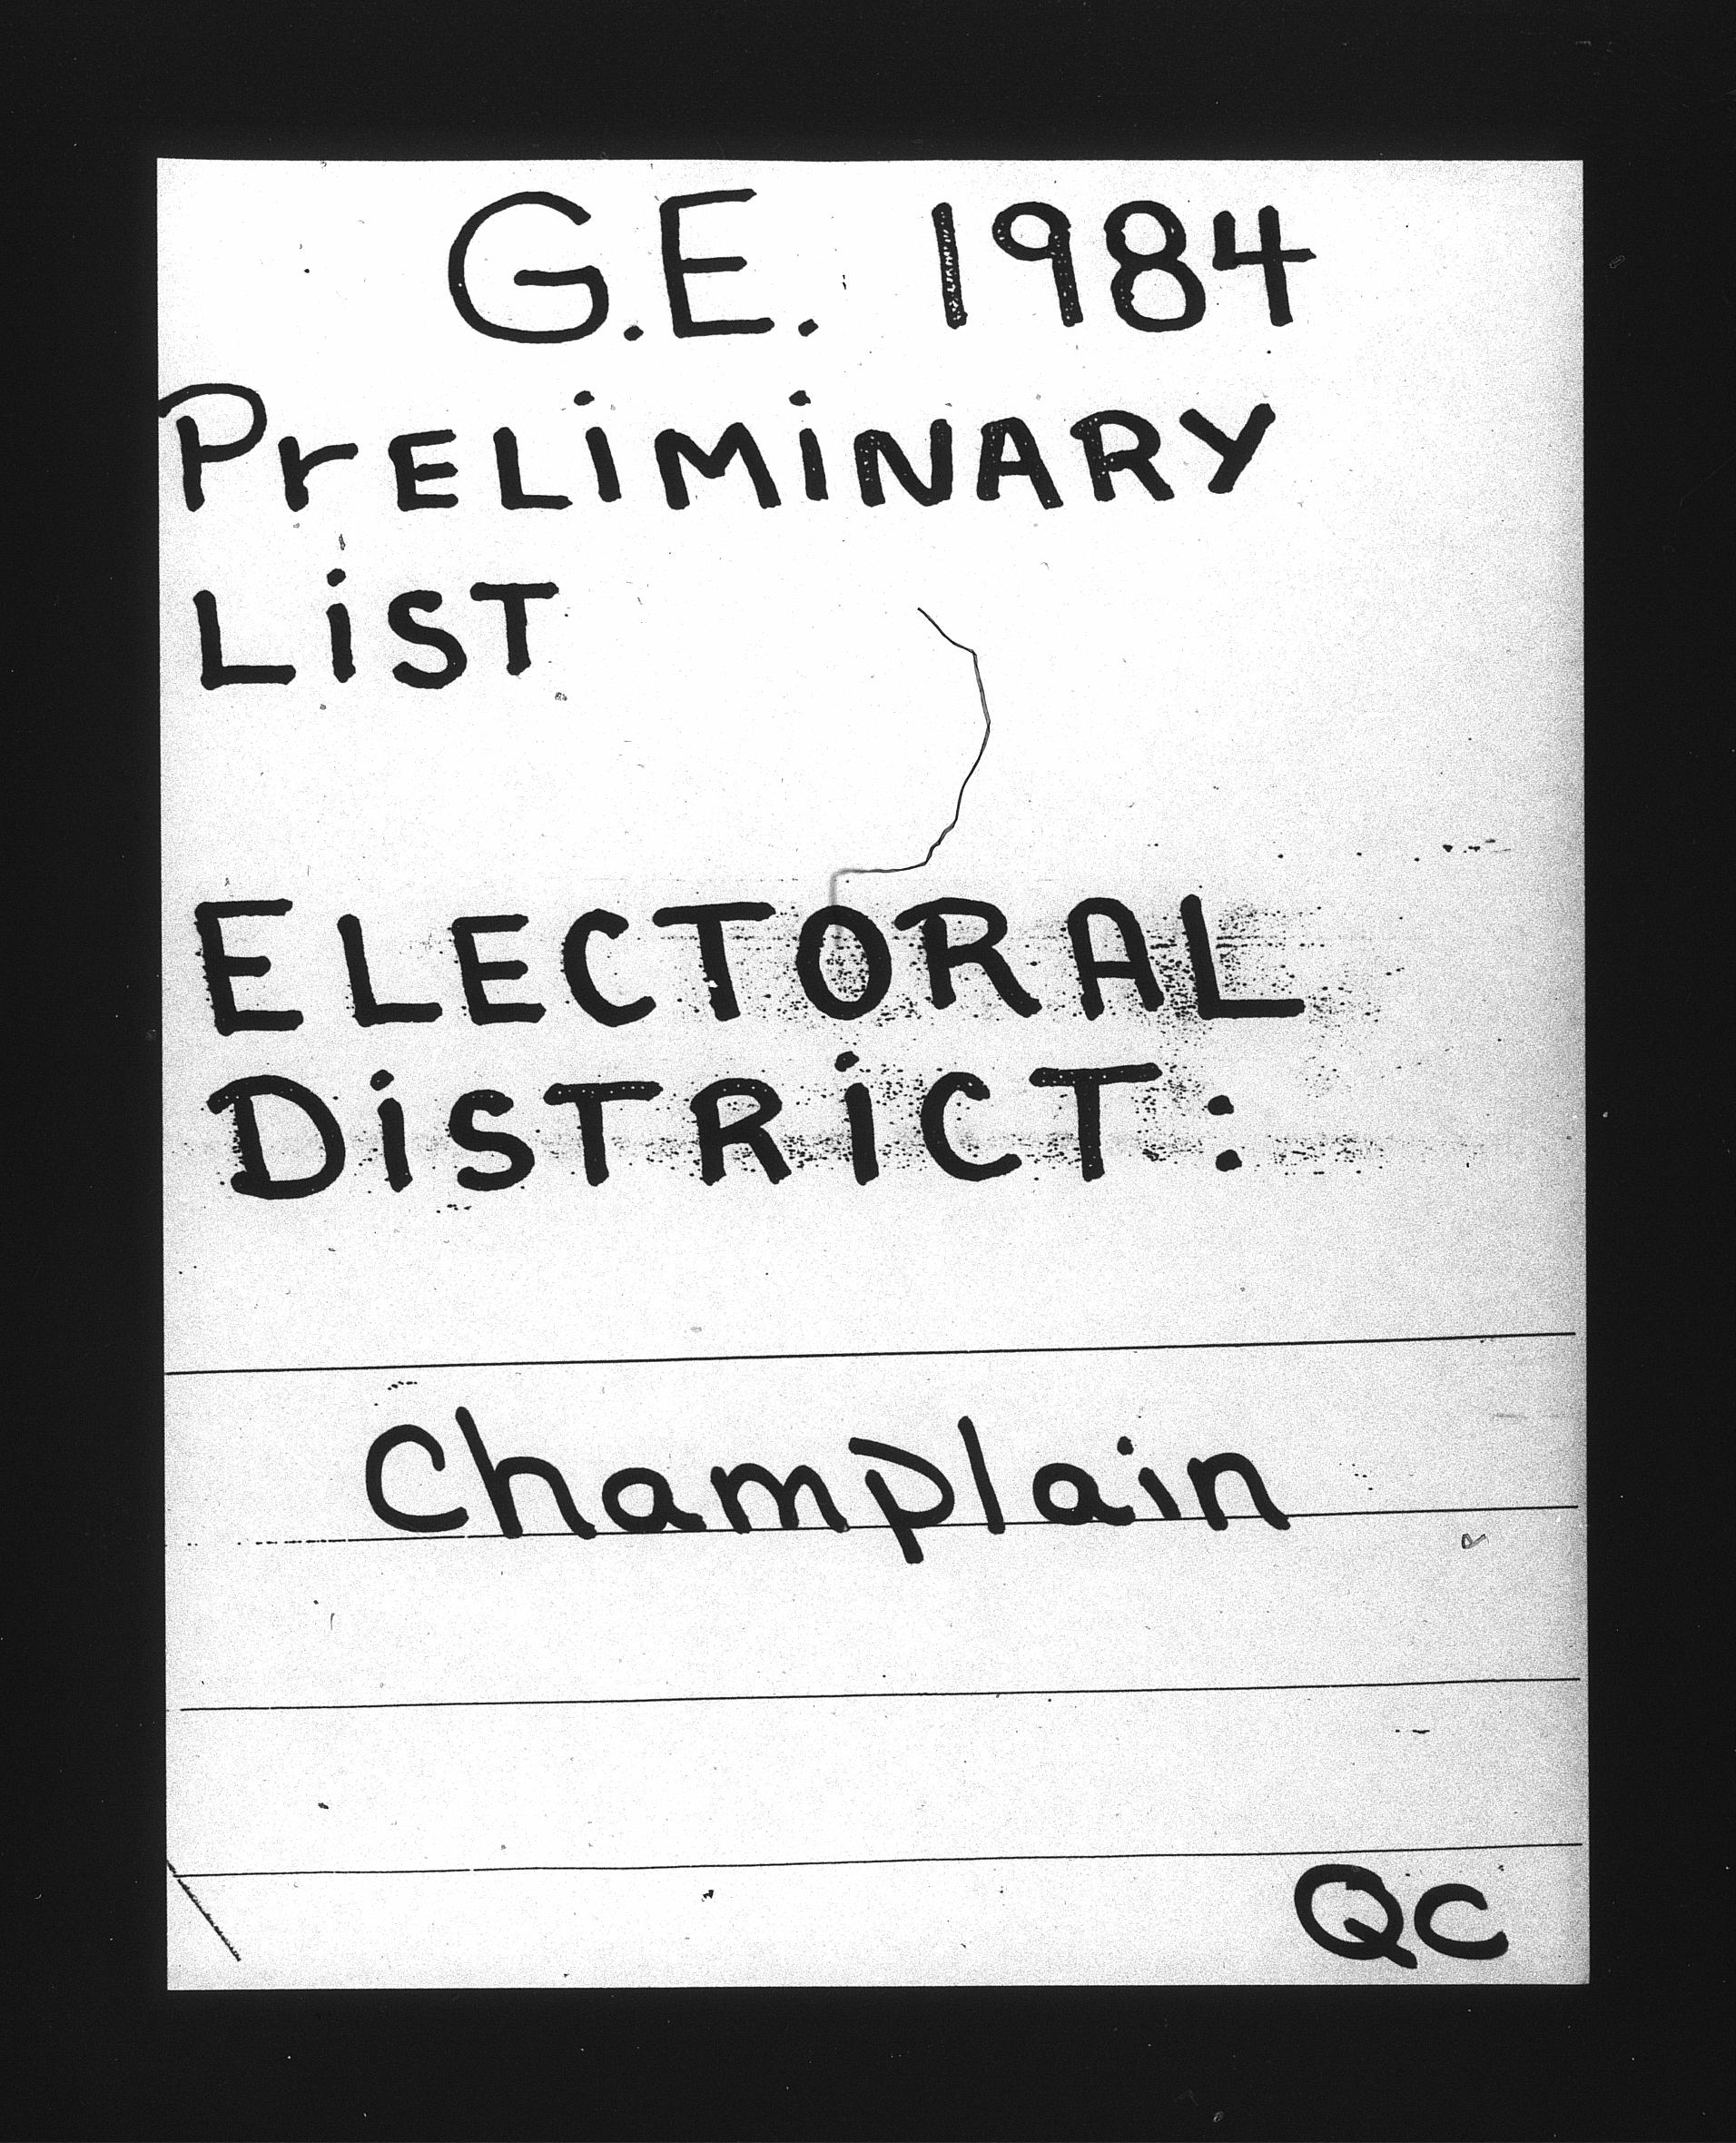 G.E. 1984
PRELIMINARY
LIST
ELECTORAL
DISTRICT:
Champlain
QC